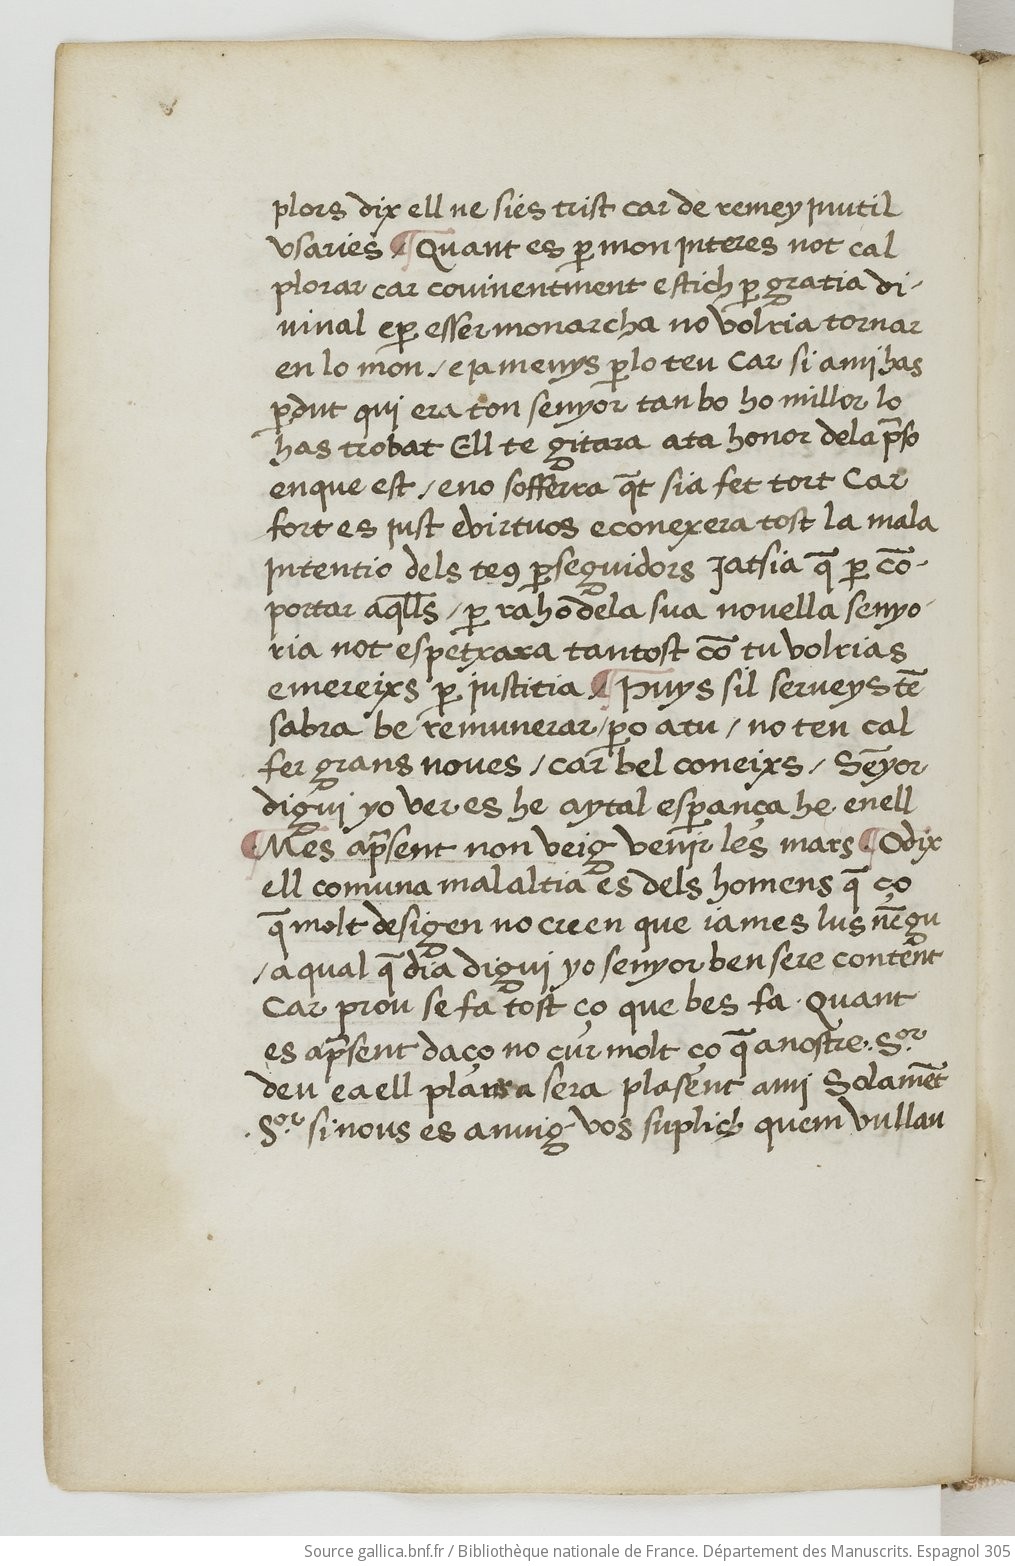 plors dix ell ne sies trist car de remey jnutil
vsaries ¶ Quant es p̲ mon jnteres not cal
plorar car couinentment estich p̲ gratia di-
uinal e p̲ esser monarcha no volria tornar
en lo mon ./ e ja menys p̲ lo teu Car si a mj has
p̲dut quj era ton senyor tan bo ho millor lo
has trobat Ell te gitara a ta honor de la p̄so
en que est / e no sofferra q̄t sia fet tort Car
fort es just e virtuos e conexera tost la mala
jntentio dels teꝯ p̲seguidors Jatsia q̄ p̲ cō-
portar aq̄lls / p̲ rahō de la sua nouella senyo-
ria not espetxara tantost cō tu volrias
e mereixs p̲ justitia ¶ Puys sil serueys tē
sabra be remunerar / p̲o a tu / no ten cal
fer grans noues / car bel coneixs / Sēyor
diguj yo ver es he aytal esp̲ança he en ell
¶ Mes a p̄sent non veig venir les mars ¶ O dix
ell comuna malaltia es dels homens q̄ ço
q̄ molt desigen no creen que iames lus vēgu
/ a qual q̄ dia diguj yo senyor ben sere content
Car prou se fa tost ço que bes fa · Quant
es a p̄sent daço no cur molt ço q̄ a nostre .Sor
deu e a ell plaura sera plasent a mj Solamēt
.Sor. si nous es anuig vos suplich quem vullau
Source gallica.bnf.fr / Bibliothèque nationale de France. Département des Manuscrits. Espagnol 305